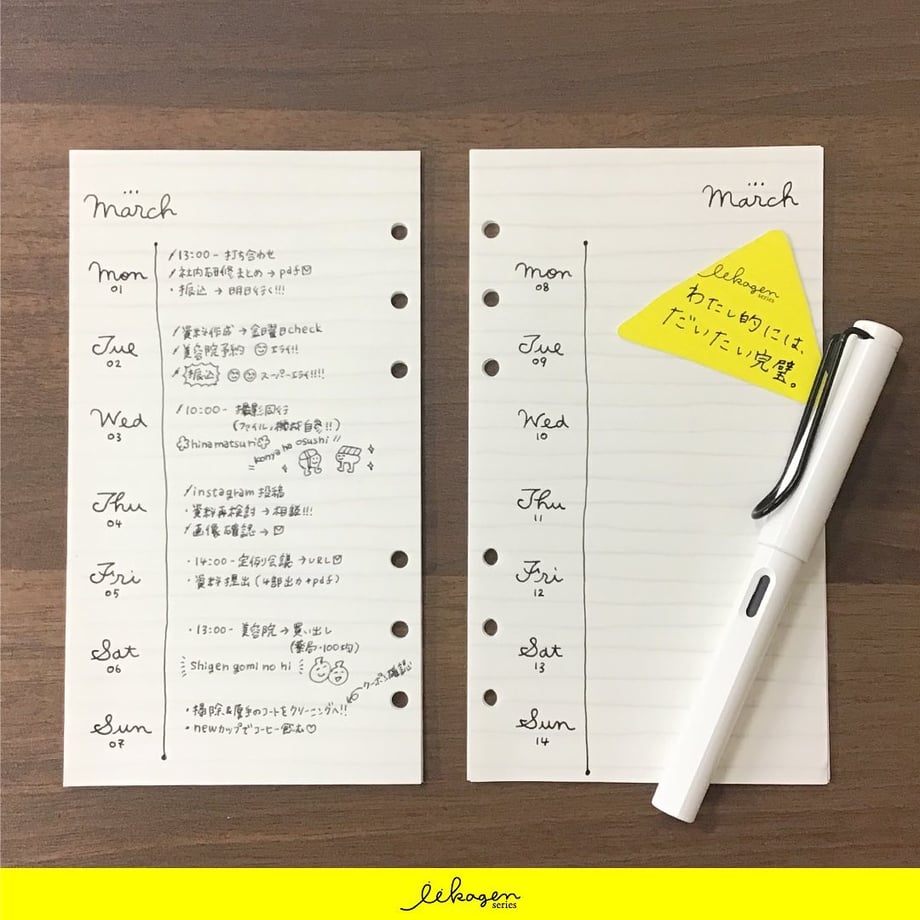 March
Mon
01
/13:00- 打ち合わせ
/社内研修まとめ → pdf
・振込 → 明日行く!!!
Tue
02
/資料作成 → 金曜日check
/美容院予約 エライ!!
/振込 スーパーエライ!!!!
Wed
03
/10:00- 撮影同行
(ファイル、機材自参!!)
hinamatsuri
konya ha osushi
Thu
04
/instagram 投稿
・資料再検討 → 相談!!!
/画像確認 →
Fri
05
・14:00- 定例会議 → URL
・資料提出 (4部出力+pdf)
Sat
06
・13:00- 美容院 → 買い出し
(薬局・100均)
shigen gomi no hi
クーポン確認
Sun
07
・掃除&厚手のコートをクリーニングへ!!
・newカップでコーヒー飲む♡
March
Mon
08
Tue
09
Wed
10
Thu
11
Fri
12
Sat
13
Sun
14
iikagen
series
わたし的には、
だいたい完璧。
iikagen
series